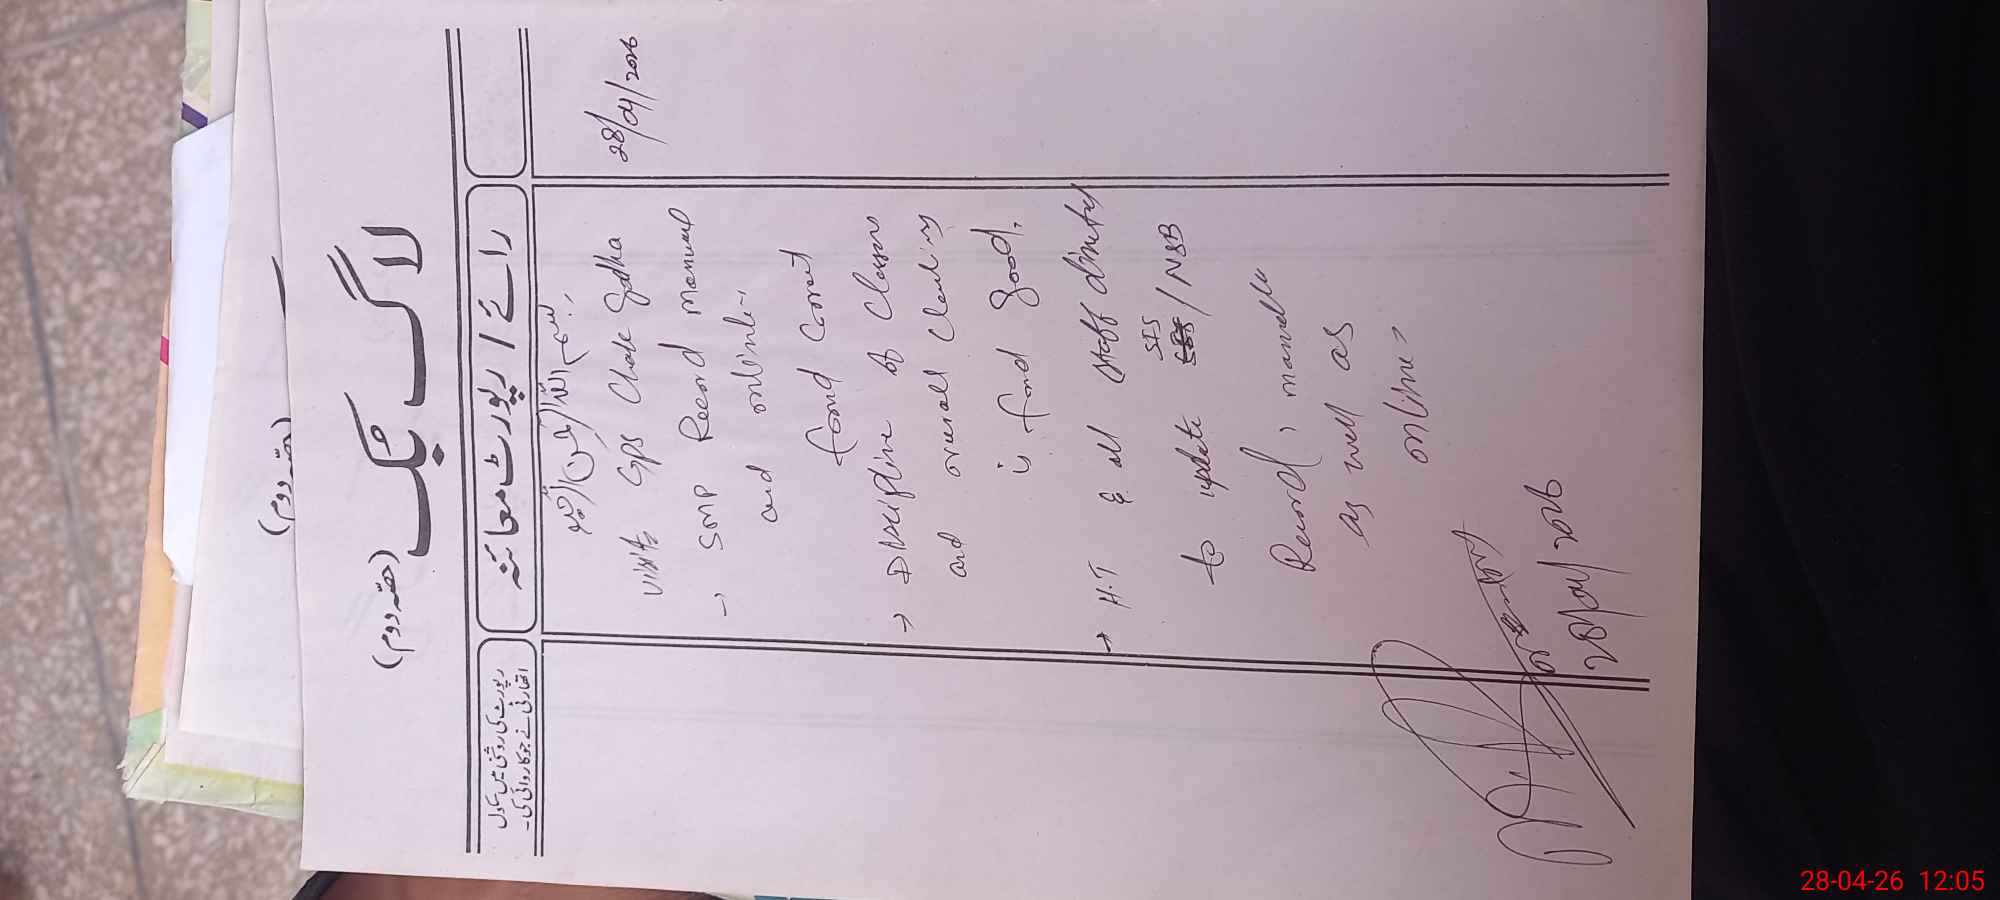 (حصّہ دوم)
(حصّہ دوم)
لاگ بک
رائے / رپورٹ معائنہ
رپورٹ کی روشنی میں مجاز
اتھارٹی نے جو کاروائی کی۔
28/04/2026
بسم اللہ الرحمٰن الرحیم
Visit GPS Chak
→ SMP Record manual
and online
found correct
→ Discipline of Classes
and overall
is found good.
→ H.T & all staff directed
SIS
to update / NSB
Record,
as well as
online
28/04/2026
28-04-26 12:05